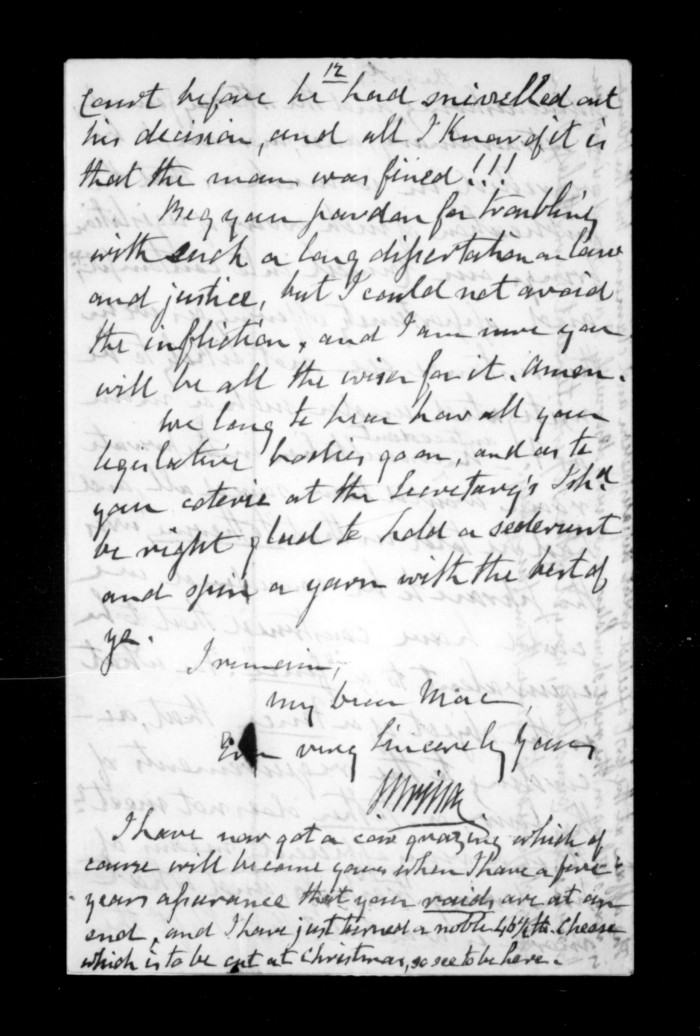 12
Court before he had snivelled out
his decision, and all I know of it is
that the man was fined!!!
Beg your pardon for troubling
with such a long dissertation on law
and justice, but I could not avoid
the infliction, and I am sure you
will be all the wiser for it. Amen.
We long to hear how all your
legislative bodies go on, and as to
your coterie at the Secretary's I shd
be right glad to hold a sederunt
and spin a yarn with the best of
ye.
I remain,
My dear Mac,
Ever very Sincerely Yours
I have now got a cow grazing which of
course will become yours when I have a five
years assurance that your raids are at an
end, and I have just turned a noble 46½ lb. Cheese
which is to be cut at Christmas, so see to be here.